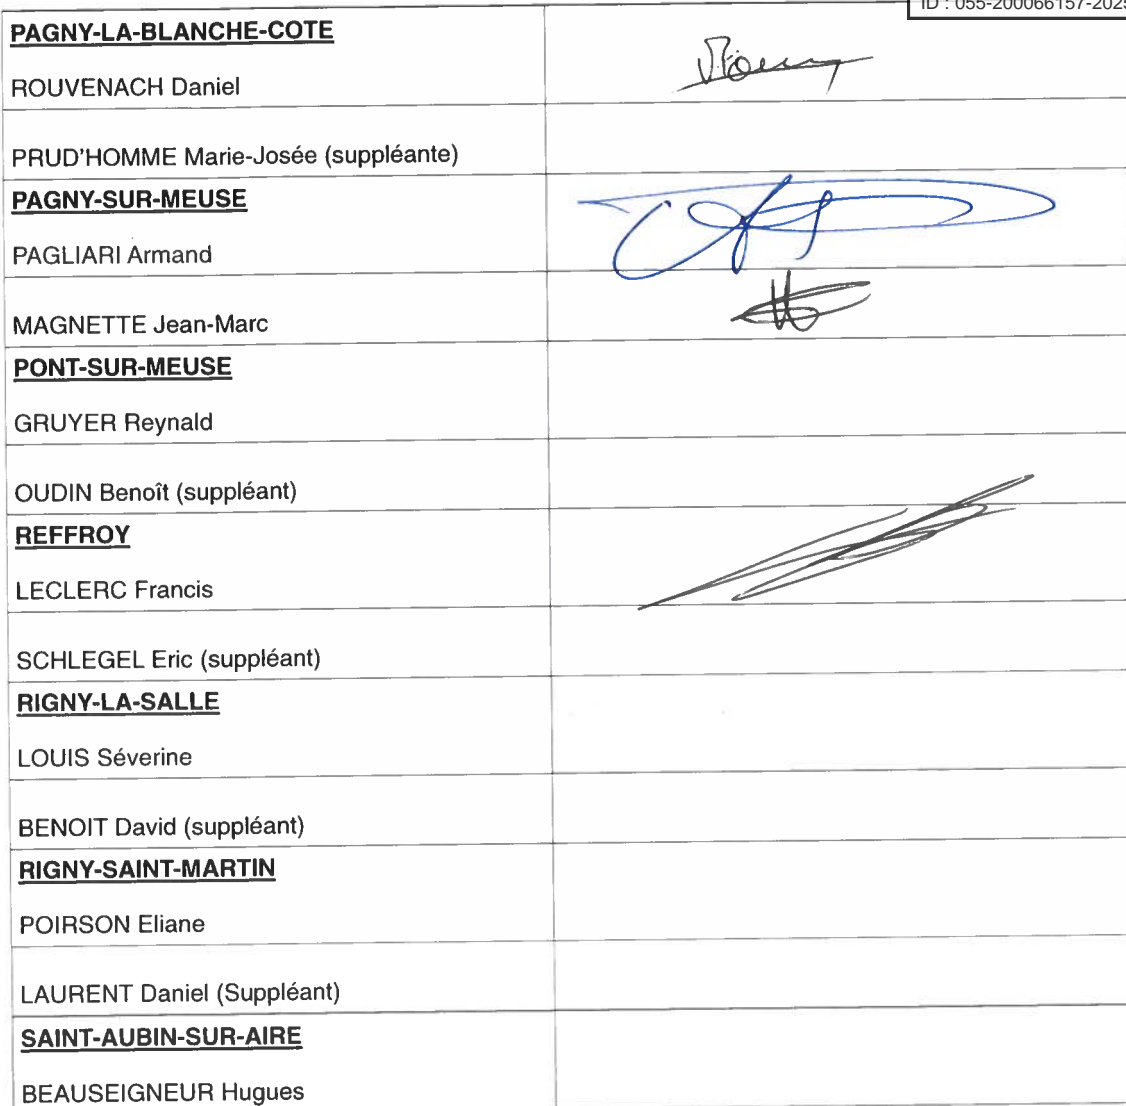 ID : 055-200066157-2025
PAGNY-LA-BLANCHE-COTE
ROUVENACH Daniel
PRUD'HOMME Marie-Josée (suppléante)
PAGNY-SUR-MEUSE
PAGLIARI Armand
MAGNETTE Jean-Marc
PONT-SUR-MEUSE
GRUYER Reynald
OUDIN Benoît (suppléant)
REFFROY
LECLERC Francis
SCHLEGEL Eric (suppléant)
RIGNY-LA-SALLE
LOUIS Séverine
BENOIT David (suppléant)
RIGNY-SAINT-MARTIN
POIRSON Eliane
LAURENT Daniel (Suppléant)
SAINT-AUBIN-SUR-AIRE
BEAUSEIGNEUR Hugues